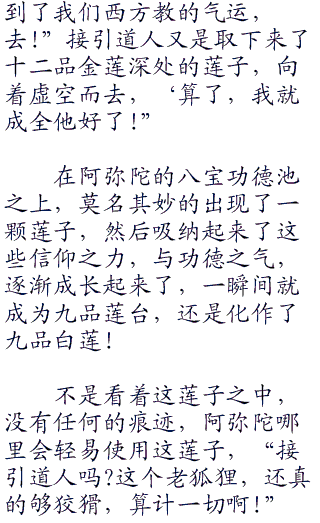 到了我们西方教的气运，
去！”接引道人又是取下来了
十二品金莲深处的莲子，向
着虚空而去，‘算了，我就
成全他好了！”
在阿弥陀的八宝功德池
之上，莫名其妙的出现了一
颗莲子，然后吸纳起来了这
些信仰之力，与功德之气，
逐渐成长起来了，一瞬间就
成为九品莲台，还是化作了
九品白莲！
不是看着这莲子之中，
没有任何的痕迹，阿弥陀哪
里会轻易使用这莲子，“接
引道人吗？这个老狐狸，还真
的够狡猾，算计一切啊！”